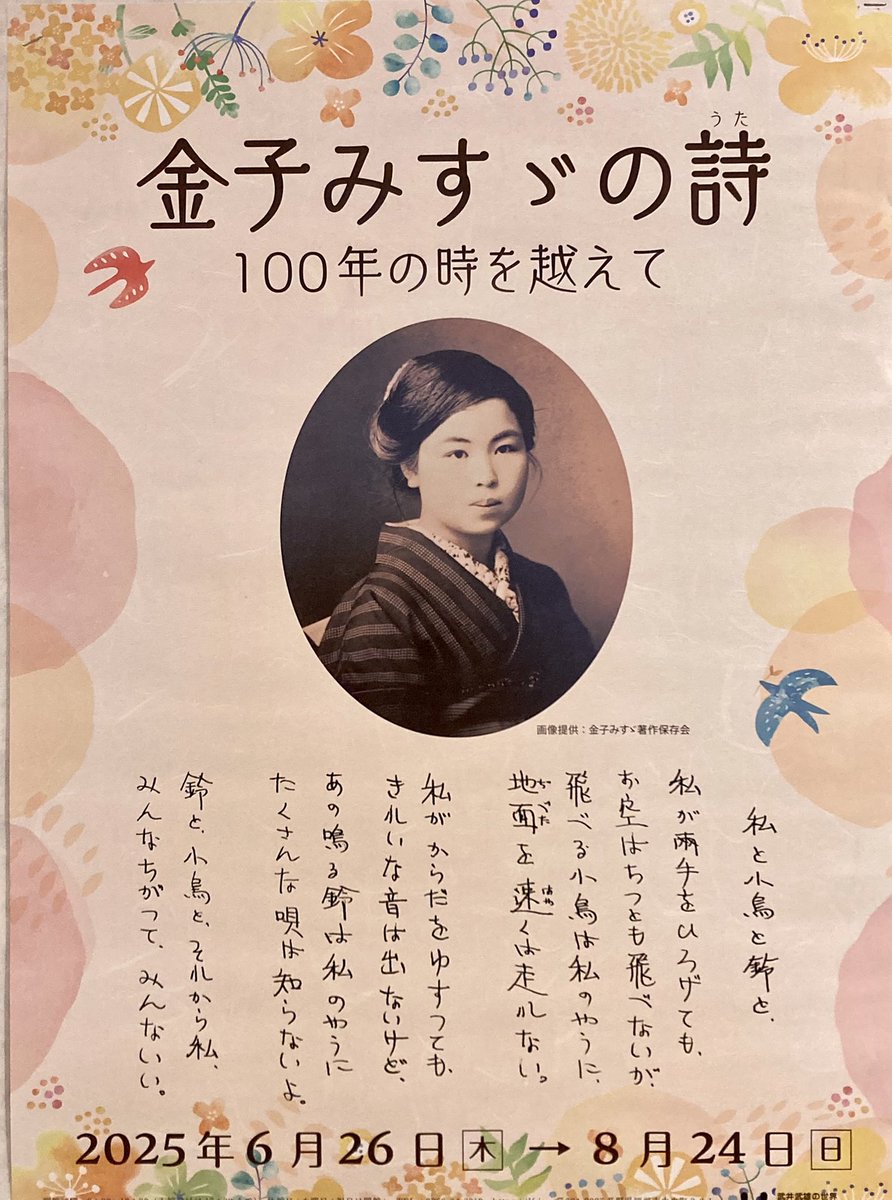 うた
金子みすゞの詩
100年の時を越えて
画像提供：金子みすゞ著作保存会
私と小鳥と鈴と、
私が両手をひろげても、
お空はちっとも飛べないが、
飛べる小鳥は私のやうに、
地面を速くは走れない。
じべた
はや
私がからだをゆすっても、
きれいな音は出ないけど、
あの鳴る鈴は私のやうに
たくさんな唄は知らないよ。
鈴と、小鳥と、それから私、
みんなちがって、みんないい。
2025年6月26日 木 → 8月24日 日
武井武雄の世界